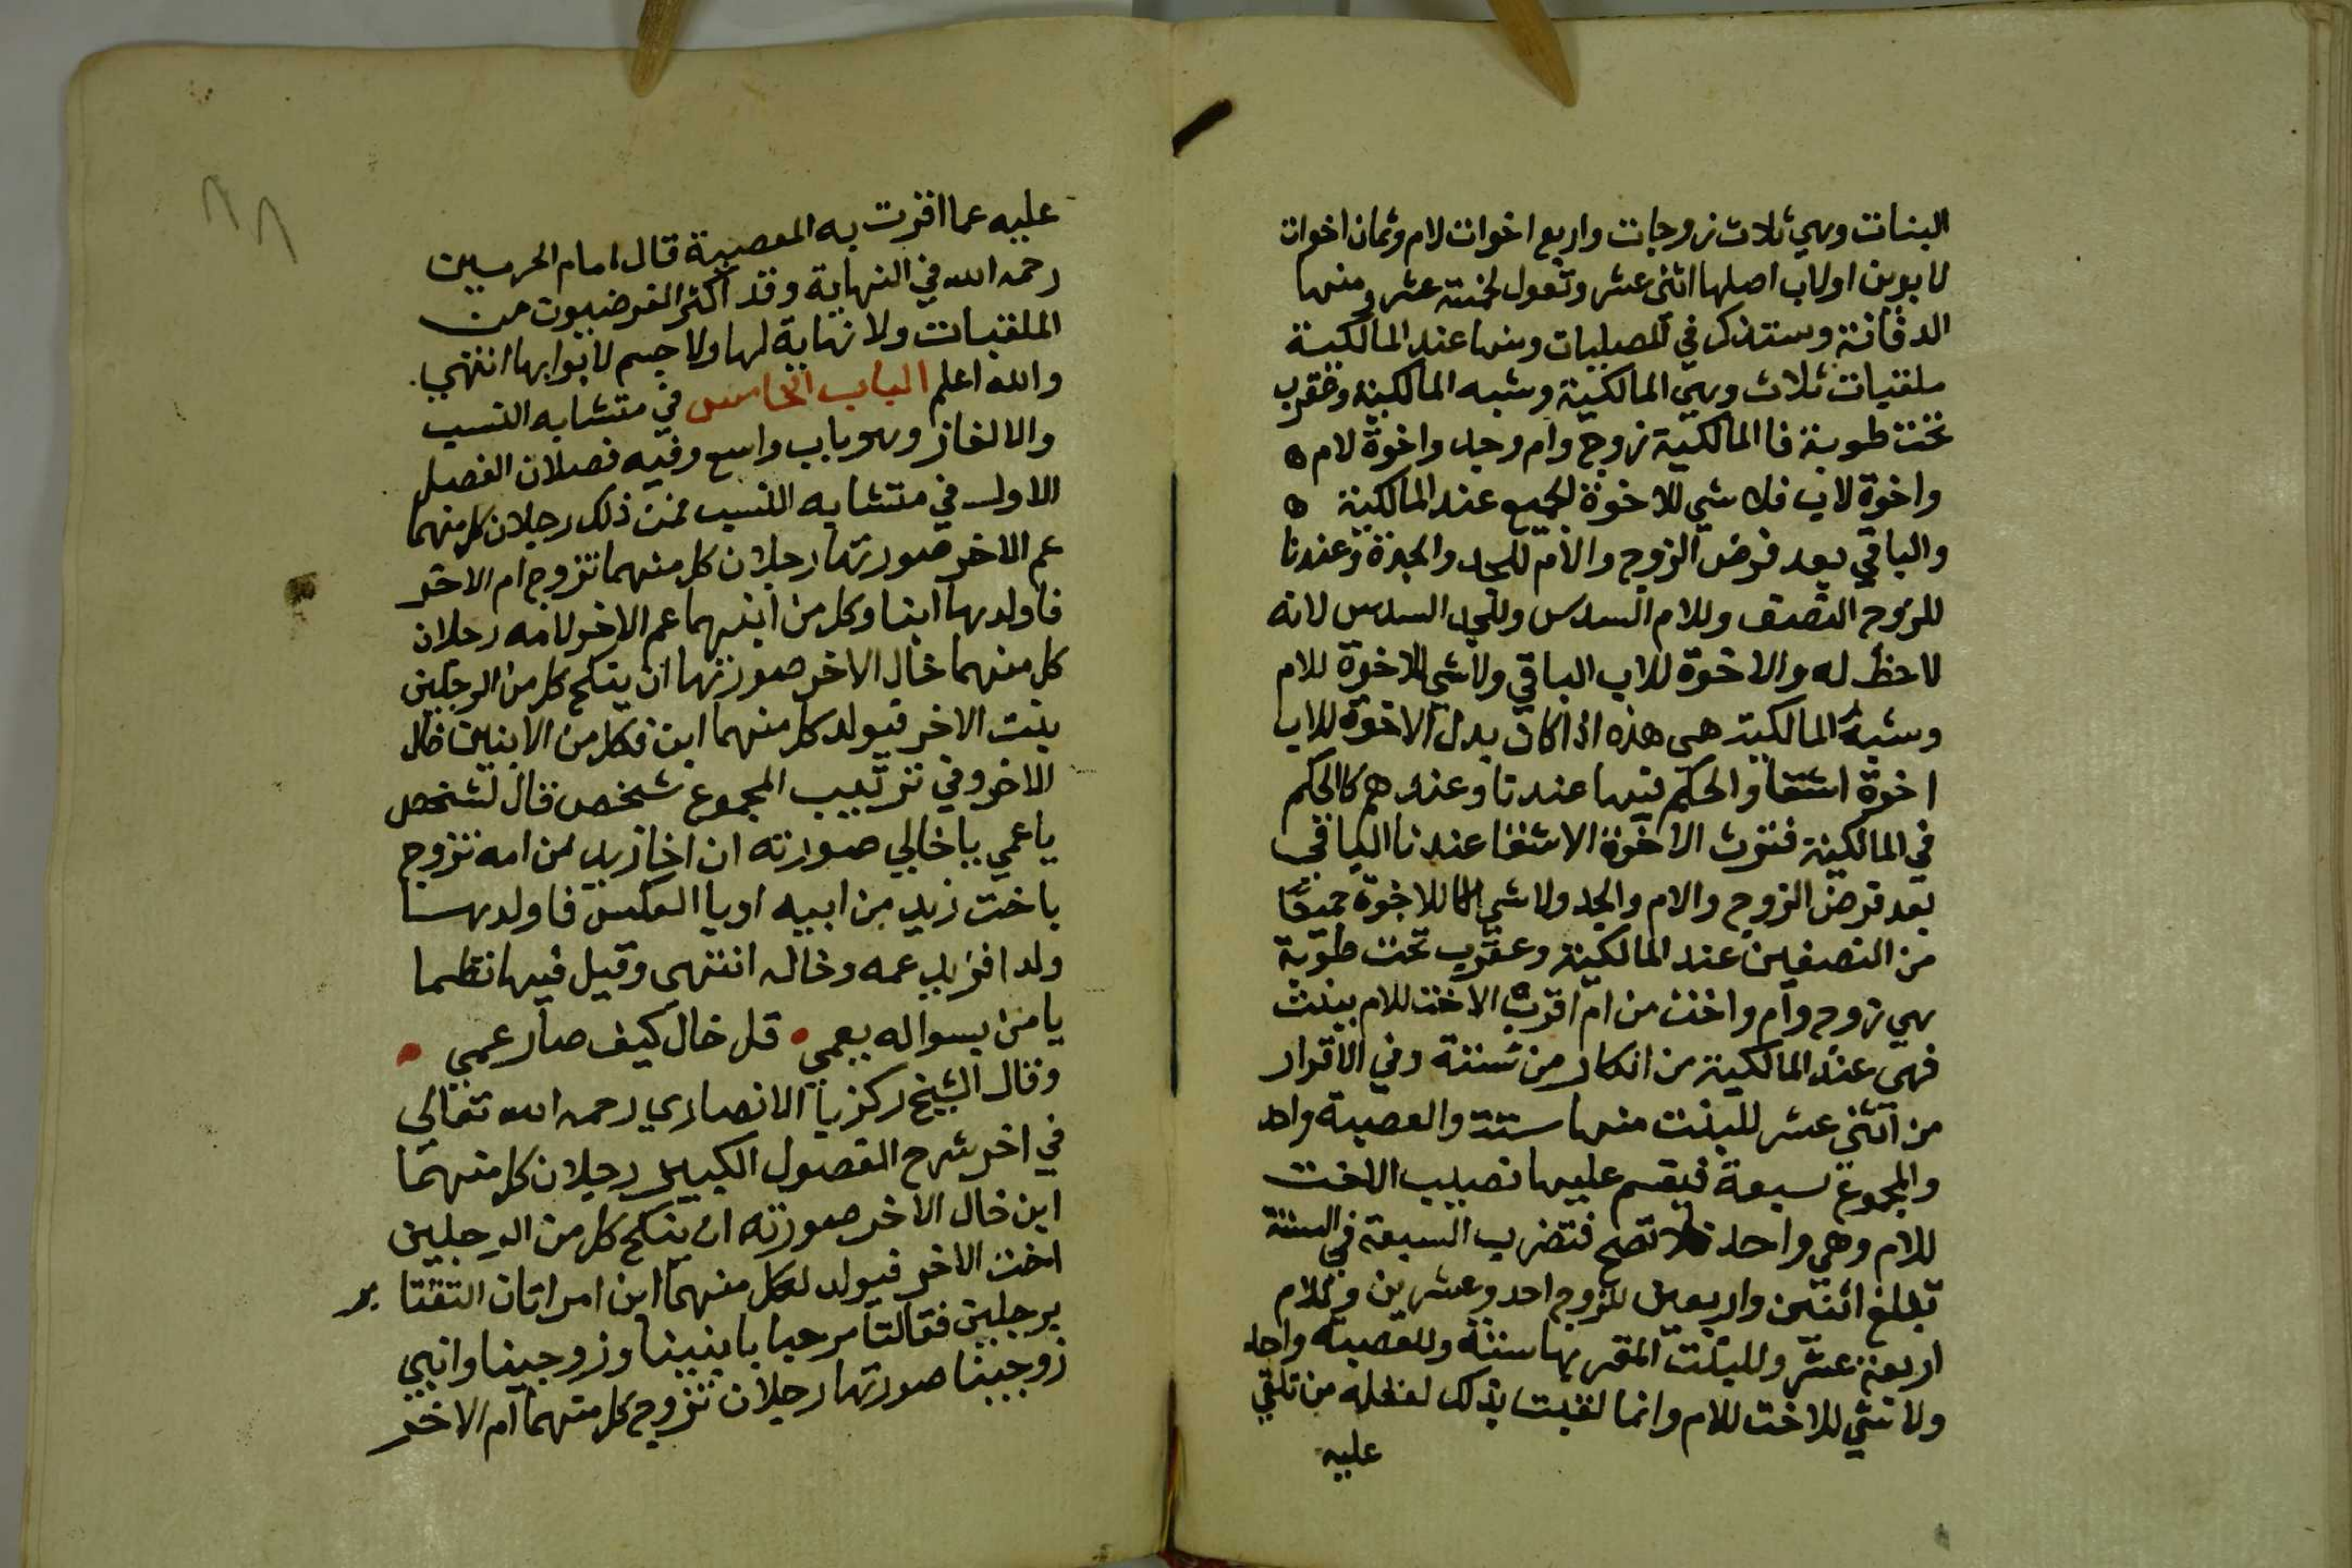 البنات وهي ثلاث زوجات واربع اخوات لام وثمان اخوات
لابوين اولاب اصلها اثنى عشر وتعول لخمسة عشر ومنها
الدفانة وستذكر في المصليات ومنها عند المالكية
ملقبات ثلاث وهي المالكية وشبه المالكية وعقرب
تحت طوبة فا المالكية زوج وام وجد واخوة لام ه
واخوة لاب فلا شي للاخوة الجميع عند المالكية ه
والباقي بعد فرض الزوج والام للجد والجدة وعندنا
للزوج النصف وللام السدس وللجد السدس لانه
لاحظ له والاخوة للاب الباقي ولا شي للاخوة للام
وشبه المالكية هى هذه اذا كان بدل الاخوة للاب
اخوة اشقا والحكم فيها عندنا وعندهم كالحكم
في المالكية فترث الاخوة الاشقا عندنا الباقي
بعد فرض الزوج والام والجد ولا شي للاخوة جميعا
من النصفين عند المالكية وعقرب تحت طوبة
هي زوج وام واخت من ام اقرت الاخت للام ببنت
فهى عند المالكية من انكار من ستة وفي الاقرار
من اثنى عشر للبنت منها ستة والعصبة واحد
والمجموع سبعة فيقسم عليها نصيب الاخت
للام وهي واحد فلا تصح فتضرب السبعة في الستة
تبلغ اثنتين واربعين للزوج احد وعشرين وللام
اربعة عشر وللبنت المقر بها ستة وللعصبة واحد
ولا شي للاخت للام وانما لقبت بذلك لغفلة من تلقي
عليه
عليه عما اقرت به المعصبة قال امام الحرمين
رحمه الله في النهاية وقد اكثر الفرضيون من
الملقبات ولا نهاية لها ولا حسم لابوابها انتهي.
والله اعلم الباب الخامس في متشابه النسب
والالغاز وهو باب واسع وفيه فصلان الفصل
الاول في متشابه النسب فمن ذلك رجلان كل منهما
عم الاخر صورتها رجلان كل منهما تزوج ام الاخر
فاولدها ابنا وكل من ابنيهما عم الاخر لامه رجلان
كل منهما خال الاخر صورتها ان ينكح كل من الرجلين
بنت الاخر فيولد كل منهما ابن فكل من الابنين خال
الاخر وفي ترتيب المجموع شخص قال لشخص
يا عمي يا خالي صورته ان اخا زيد من امه تزوج
باخت زيد من ابيه او با العكس فاولدها
ولدا فزيد عمه وخاله انتهى وقيل فيها نظما
يا من بسواله يعمي قل خال كيف صار عمي
وقال الشيخ زكريا الانصاري رحمه الله تعالى
في اخر شرح الفصول الكبير رجلان كل منهما
ابن خال الاخر صورته ان ينكح كل من الرجلين
اخت الاخر فيولد لكل منهما ابن امراتان التقتا بر
برجلين فقالتا مرحبا بابنينا وزوجينا وابني
زوجينا صورتها رجلان تزوج كل منهما ام الاخر